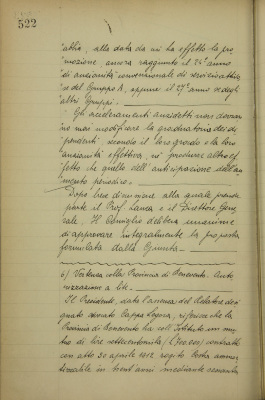 522
"abbia, alla data da cui ha effetto la pro
mozione, ancora raggiunto il 24° anno
di anzianità convenzionale di servizio attivo
se del Gruppo A, oppure il 27° anno se degli
altri Gruppi.
"Gli acceleramenti anzidetti non dovran
no mai modificare la graduatoria dei di
pendenti secondo il loro grado e la loro
anzianità effettiva, né produrre altro ef
fetto che quello dell'anticipazione dell'au
mento periodico.
Dopo breve discussione alla quale prende
parte il Prof. e il Direttore Gene
rale. Il Consiglio delibera unanime
di approvare integralmente la proposta
formulata dalla Giunta.
6) Vertenza colla Provincia di Benevento. Auto
rizzazione a lite.
Il Presidente, data l'assenza del Relatore desi
gnato, riferisce che la
Provincia di Benevento ha coll'Istituto un mu
tuo di lire settecentomila (L. 700.000) contratto
con atto 20 aprile 1912 rogito ammor
tizzabile in trent'anni mediante